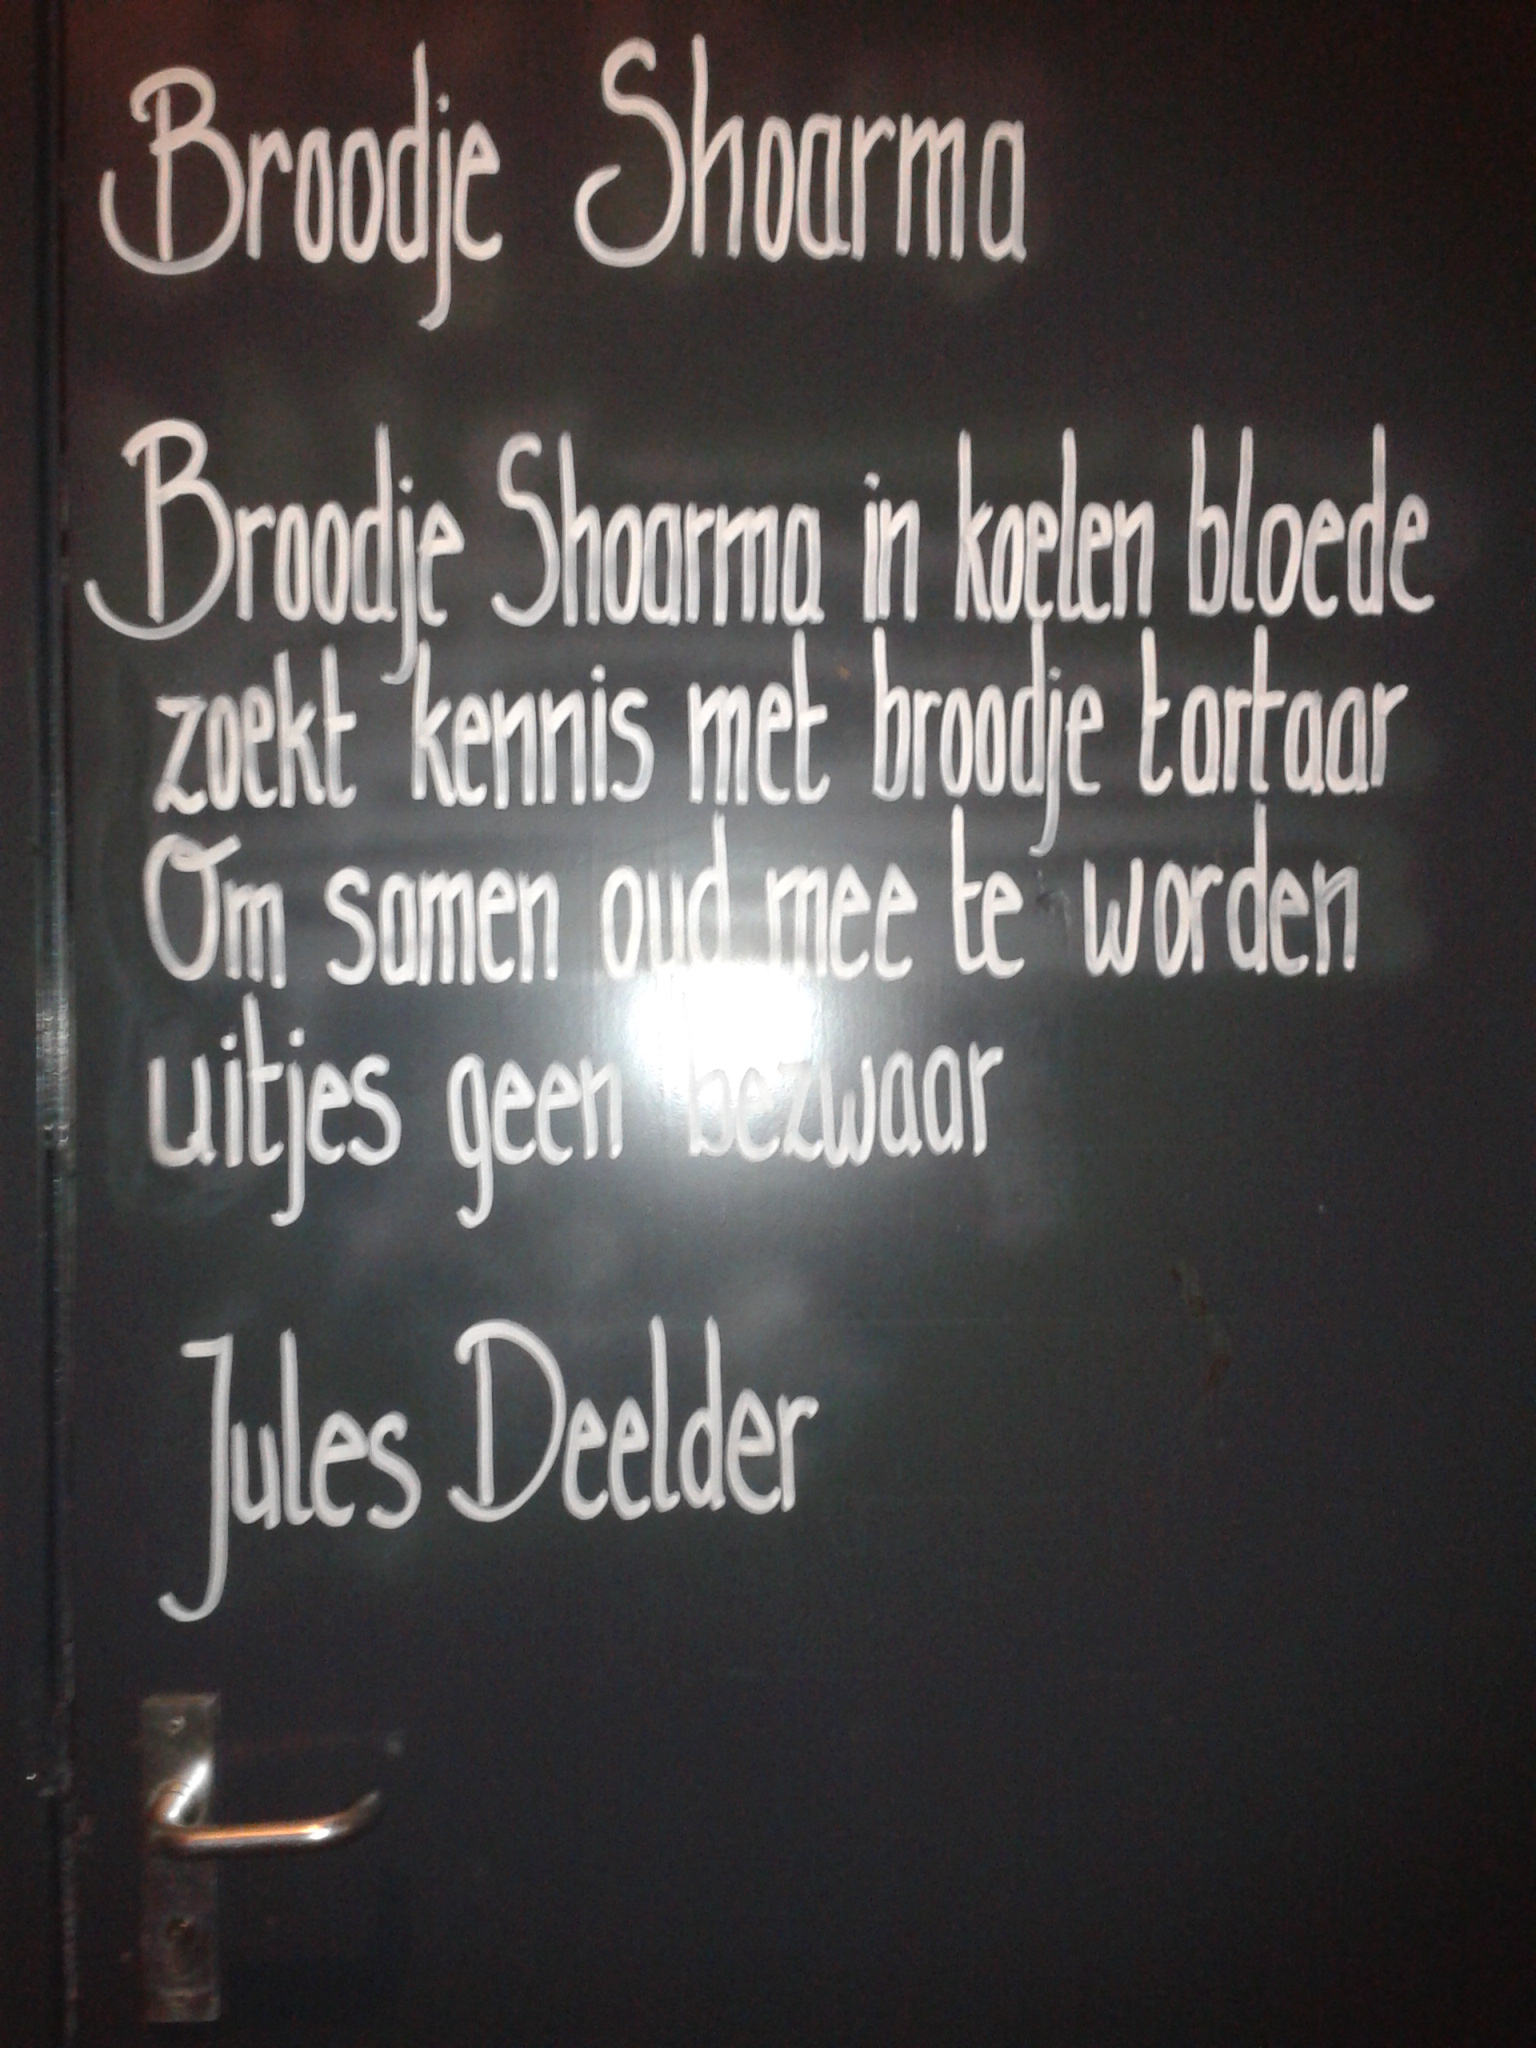 Broodje Shoarma
Broodje Shoarma in koelen bloede
zoekt kennis met broodje tartaar
Om samen oud mee te worden
uitjes geen bezwaar
Jules Deelder